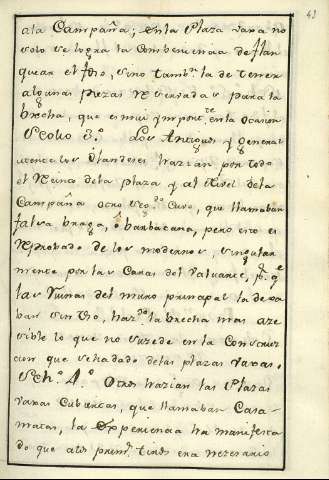 41
ala Campaña; enla Plaza vaxa no
solo se logra la Combeniencia de flan
quear el foso, sino tamvn. la de tener
algunas piezas reservadas para la
brecha, que es mui ymportte. en la ocasion
Scolio 3.º Los Antiguos y general
mente los Olandeses hazian por todo
el Recinto dela plaza y al Nivel dela
Campaña otro segdo. Cuvo, que llamaban
falsa braga, ô barbacana, pero esto es
reprobado de los modernos, singular
mente por las Casas del valuarte, p. qe
las Ruinas del muro principal la dexa
ban sin Vso, hazdo. la brecha mas aze
sible lo que no suzede en la Construc
cion que sehadado delas plazas vaxas.
Sch.º 4.º Otros hazian las Plazas
vaxas Cubiertas, que llamaban Casa
matas, la experiencia ha manifesta
do que alos primos. tiros era nezesario